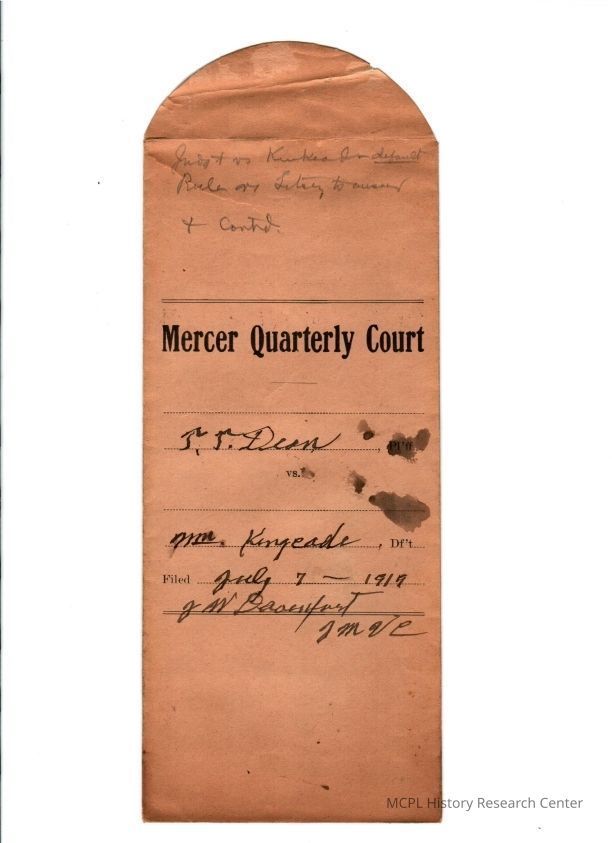 Judgt vs Kinkead on default
Rule vs Litsey to answer
& Contd.
Mercer Quarterly Court
T. T. Dean, Pl'ff
vs.
Wm. Kingeade, Df't
Filed July 7 — 1919
J W Davenport
J M Q C
MCPL History Research Center